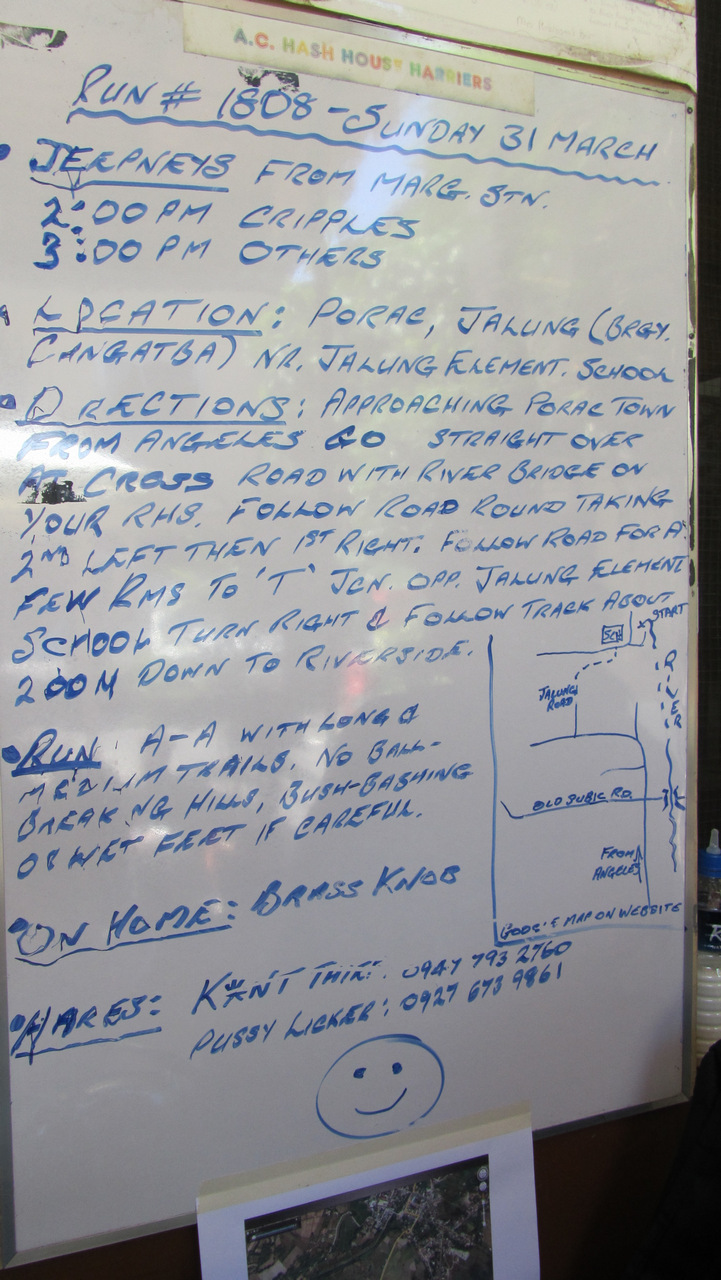 A.C. HASH HOUSE HARRIERS
RUN # 1808 - SUNDAY 31 MARCH
JEEPNEYS FROM MARG. STN.
2:00 PM CRIPPLES
3:00 PM OTHERS
LOCATION: PORAC, JALUNG (BRGY.
CANGATBA) NR. JALUNG ELEMENT. SCHOOL
D RECTIONS: APPROACHING PORAC TOWN
FROM ANGELES GO STRAIGHT OVER
AT CROSS ROAD WITH RIVER BRIDGE ON
YOUR RHS. FOLLOW ROAD ROUND TAKING
2ND LEFT THEN 1ST RIGHT. FOLLOW ROAD FOR A
FEW KMS TO 'T' JCN. OPP. JALUNG ELEMENT
SCHOOL TURN RIGHT & FOLLOW TRACK ABOUT
200M DOWN TO RIVERSIDE.
SCH
START
RIVER
JALUNG
ROAD
OLD SUBIC RD.
FROM
ANGELES
GOOG'E MAP ON WEBSITE
RUN: A-A WITH LONG &
MEDIUM TRAILS. NO BALL-
BREAK NG HILLS, BUSH-BASHING
OR WET FEET IF CAREFUL.
ON HOME: BRASS KNOB
HARES: K*NT 0947 793 2760
PUSSY LICKER: 0927 673 9861